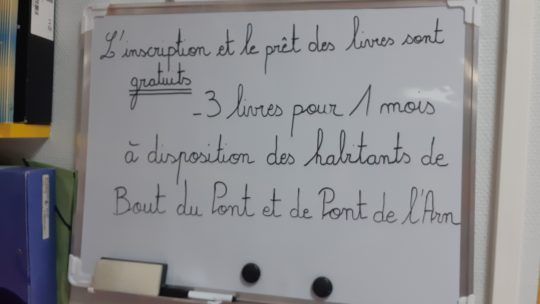 L'inscription et le prêt des livres sont
gratuits
- 3 livres pour 1 mois
à disposition des habitants de
Bout du Pont et de Pont de l'Arn